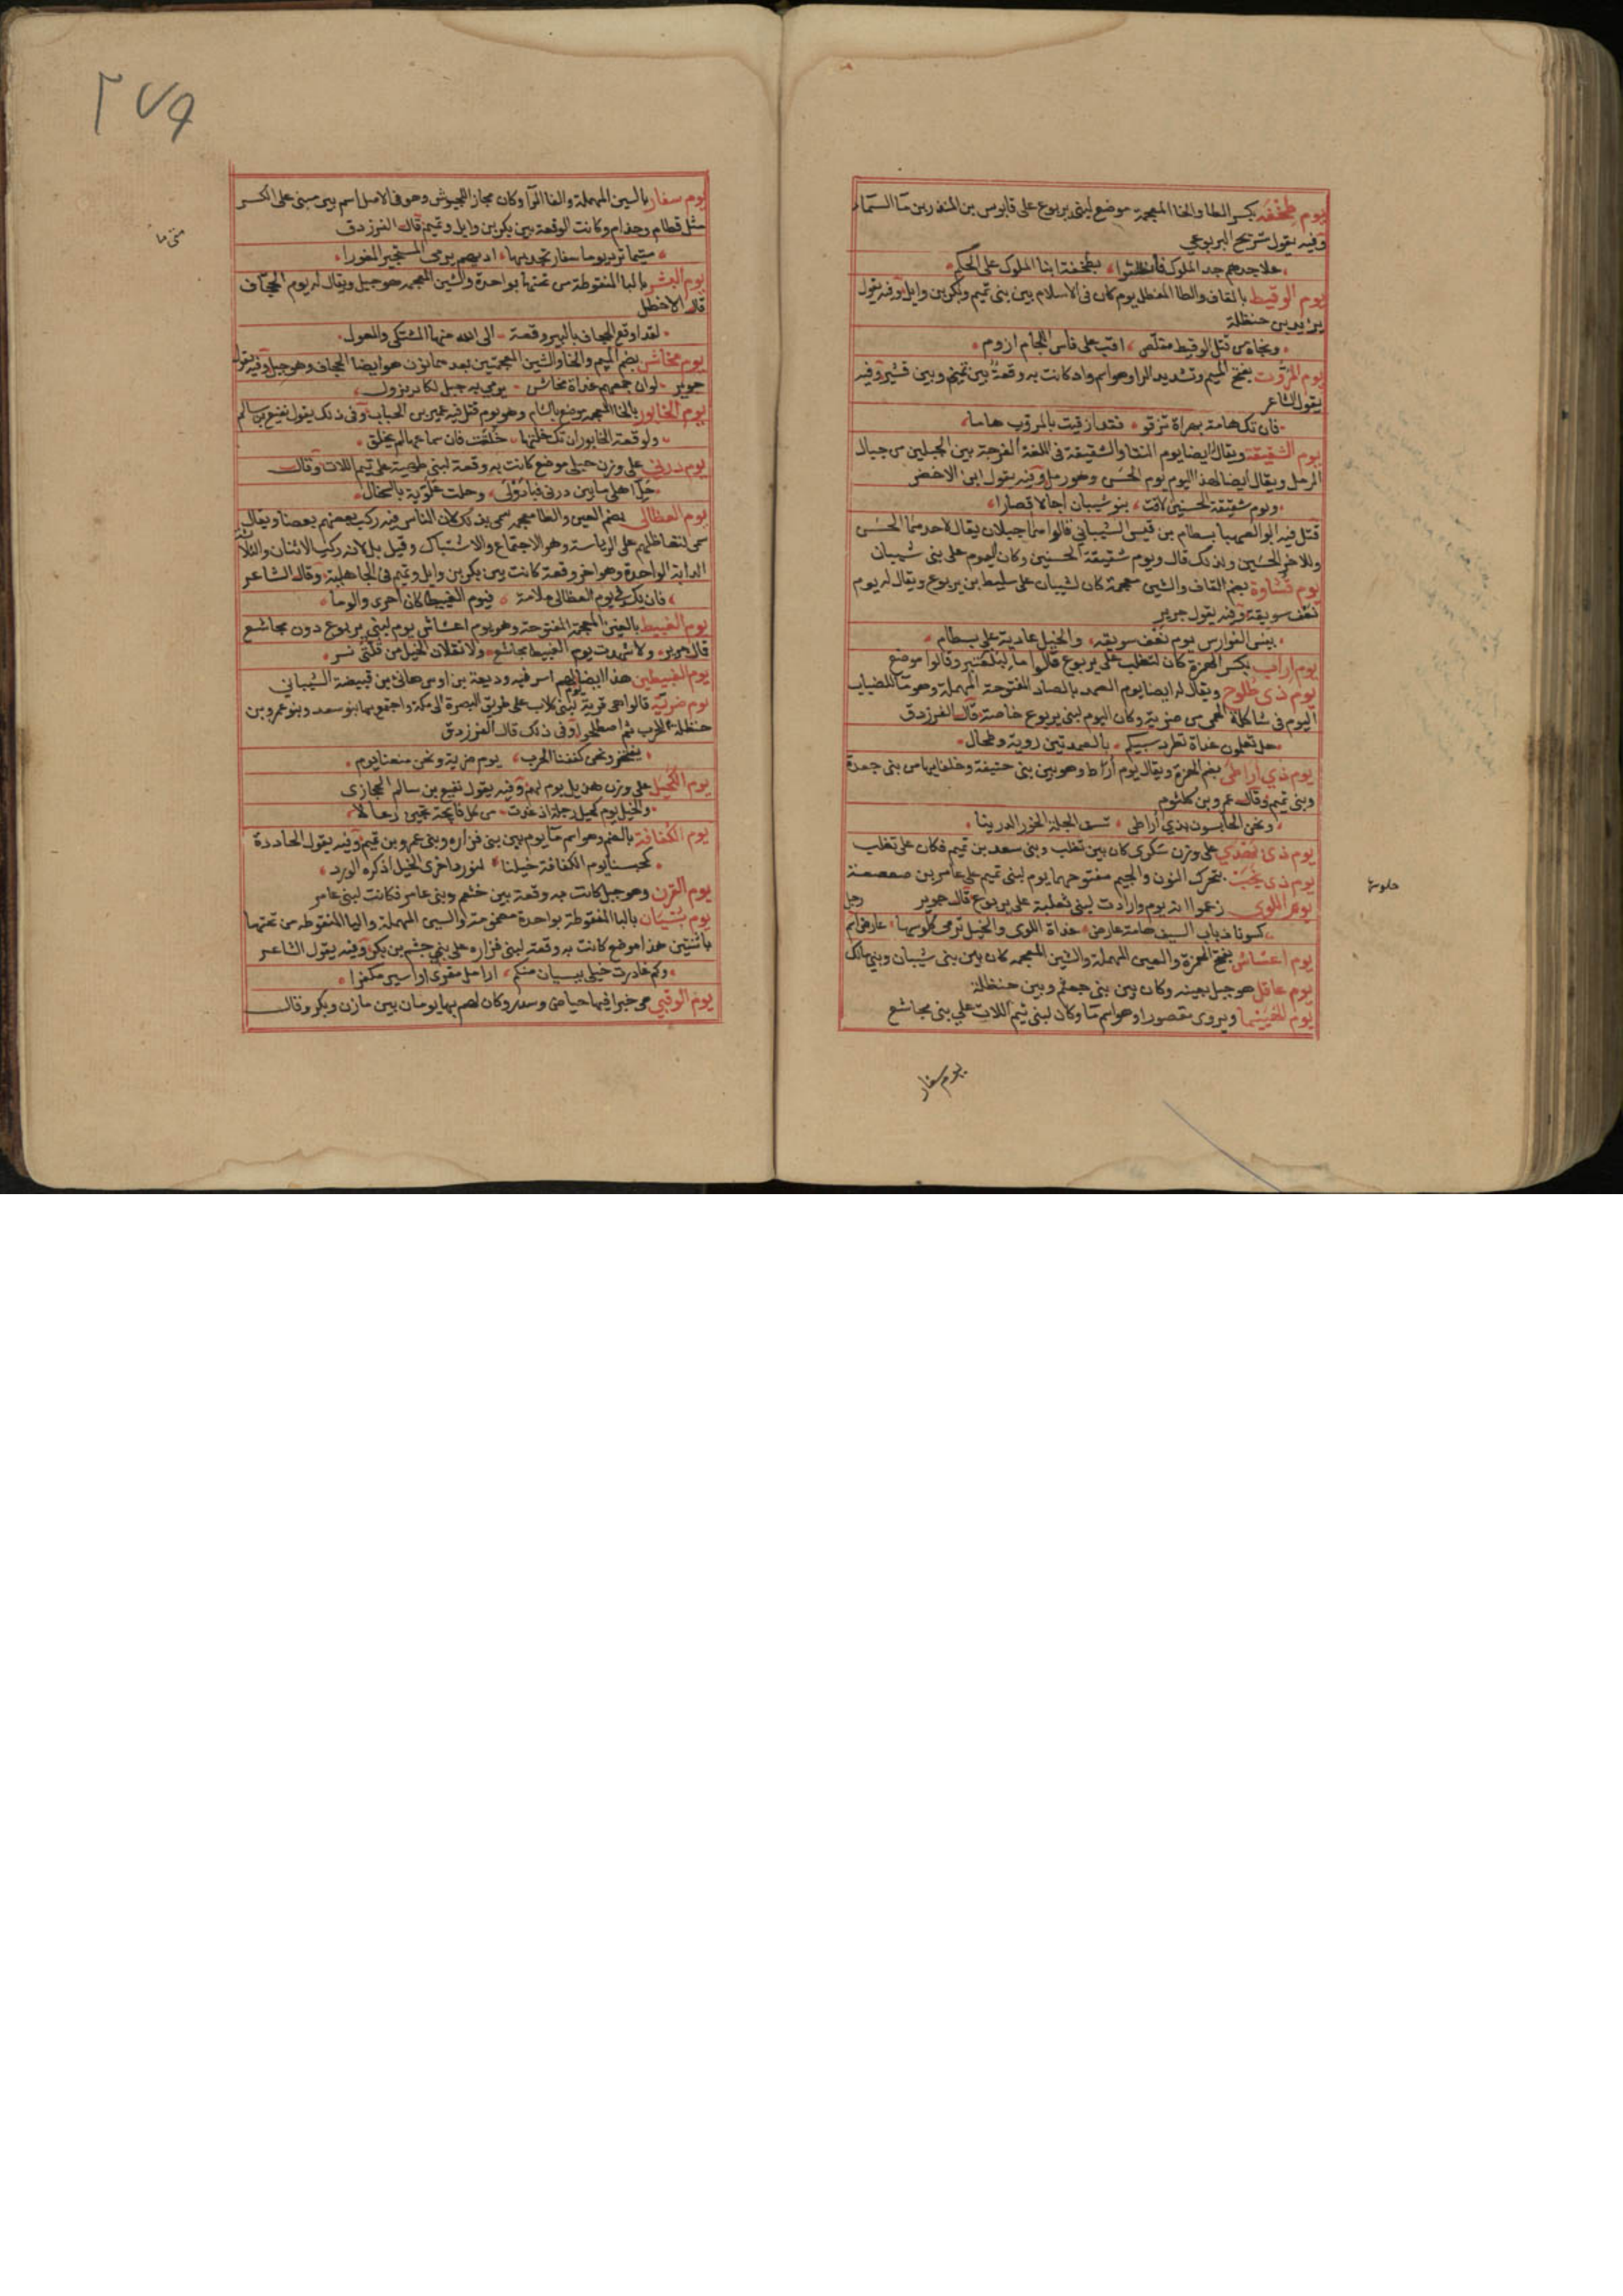 يوم طخفة بكسر الطا والخا المعجمة موضع لبنى يربوع على قابوس بن المنذر بن ما السماء
وفيه يقول شريح اليربوعي
علا جدهم جد الملوك فاطلقوا بطخفة ابنا الملوك على الحكم
يوم الوقيط بالقاف والطا المعطل يوم كان فى الاسلام بين بنى تميم وبكر بن وايل وفيه يقول
يزيد بن حنظلة
ونجاه من قتل الوقيط مقلص اقب على فاس اللجام ازوم
يوم المروت بفتح الميم وتشديد الرا وهو اسم واد كانت به وقعة بين تميم وبين قشير وفيه
يقول الشاعر
فان تك هامة بهراة تزقو فقد ازقيت بالمروت هاما
يوم الشقيقة ويقال ايضا يوم النقا والشقيقة فى اللغة الفرجة بين الجبلين من جبال
الرمل ويقال ايضا لهذا اليوم يوم الحسن وهو رمل وفيه يقول ابن الاخضر
ويوم شقيقة الحسنين لاقت بنو شيبان اجالا قصارا
قتل فيه ابو الصهبا بسطام بن قيس الشيباني قالوا هما جبلان يقال لاحدهما الحسن
وللاخر الحسين ولذلك قال ويوم شقيقة الحسنين وكان اليوم على بنى شيبان
يوم قشاوة بضم القاف والشين معجمة كان لشيبان على سليط بن يربوع ويقال له يوم
نعف سويقة وفيه يقول جرير
بيس الفوارس يوم نعف سويقه والخيل عادية على بسطام
يوم اراب بكسر الهمزة كان لتغلب على يربوع قالوا ما لبلعنبر وقالوا موضع
يوم ذى طلوح ويقال له ايضا يوم الصمد بالصاد المفتوحة المهملة وهو ما للضباب
اليوم فى شاكلة الحمى من ضرية وكان اليوم لبنى يربوع خاصة قال الفرزدق
هل تعلمون غداة تطرد سبيكم بالصمد بين روية وطحال
يوم ذي اراطى بضم الهمزة ويقال يوم اراط وهو بين بنى حنيفة وحلفايها من بنى جعدة
وبنى تميم وقال عمرو بن كلثوم
ونحن الحابسون بذي اراطى تسف الجلة الخور الدرينا
يوم ذى بهدي على وزن سكرى كان بين تغلب وبنى سعد بن تميم فكان على تغلب
يوم ذى نجب بتحرك النون والجيم مفتوحهما يوم لبنى تميم على عامر بن صعصعة
يوم اللوى زعموا انه يوم واردات لبنى ثعلبة على يربوع قال جرير
كسونا ذباب السيف هامة عارض غداة اللوى والخيل تدمى كلومها عارض اسم رجل
يوم اعشاش بفتح الهمزة والعين المهملة والشين المعجمه كان بين بنى شيبان وبني مالك
يوم عاقل هو جبل بعينه وكان بين بنى جعثم وبين حنظلة
ويروى مقصورا وهو اسم ما وكان لبنى تيم اللات على بنى مجاشع
يوم سفار
يوم سفار بالسين المهملة والفا الرآ وكان مجاز الجيوش وهو فى الاصل اسم بير مبنى على الكسر
مثل قطام وحذام وكانت الوقعة بين بكر بن وايل وتميم قال الفرزدق
متيما ترد يوما سفار تجد بها اديهم يرمى المستجيز المعورا
متى ما
يوم البشر بالبا المنقوطة من تحتها بواحدة والشين المعجمه هو جبل ويقال له يوم الجحاف
قال الاخطل
لقد اوقع الجحاف بالبشر وقعة الى الله منها المشتكى والمعول
يوم مخاشن بضم الميم والخا والشين المعجمتين بعدهما نون هو ايضا للجحاف وهو جبل وفيه يقول
جرير لو ان جمعهم غداة مخاشن يرمى به جبل لكاد يزول
يوم الخابور بالخا المعجمه موضع بالشام وهو يوم قتل فيه عمير بن الحباب وفى ذلك يقول نفيع بن سالم
ولوقعة الخابور ان تك خلتها خلقت فان سماعها لم يخلق
يوم درنى على وزن حبلى موضع كانت به وقعة لبنى طهية على تيم اللات وقال
حل اهلى ما بين درنى فبادولى وحلت علوية بالسخال
يوم العظالى بضم العين والظا معجمه سمى بذلك لان الناس فيه ركب بعضهم بعضا ويقال
سمى لتعاظلهم على الرياسة وهو الاجتماع والاشتباك وقيل بل لانه ركب الاثنان والثلاثة
الدابة الواحدة وهو اخر وقعة كانت بين بكر بن وايل وتميم فى الجاهلية وقال الشاعر
فان يك فى يوم العظالى ملامة فيوم الغبيط كان اخزى والوما
يوم الغبيط بالغين المعجمة المفتوحة وهو يوم اعشاش يوم لبنى يربوع دون مجاشع
قال جرير ولا شهدت يوم الغبيط مجاشع ولا نقلان الخيل من قلتى نسر
يوم الغبيطين هذا ايضا لهم اسر فيه وديعة بن اوس هانئ بن قبيصة الشيباني
يوم ضرية قالوا هى قرية لبنى كلاب على طريق البصرة الى مكة واجتمع بها بنو سعد وبنو عمرو بن
حنظلة للحرب ثم اصطلحوا وفى ذلك قال الفرزدق
ونحن كففنا الحرب يوم ضرية ونحن منعنا يوم
يوم الكحيل على وزن هذيل يوم لهم وفيه يقول نفيع بن سالم الحجازى
والخيل يوم كحيل رجلة اذ غدت من كل فايحة تجين رعالا
يوم الكفافة بالضم وهو اسم ما يوم بين بنى فزاره وبنى عمرو بن تميم وفيه يقول الحادرة
كمحبسنا يوم الكفافة خيلنا لنورد اخرى الخيل اذ كره الورد
يوم القرن وهو جبل كانت به وقعة بين خثعم وبنى عامر فكانت لبنى عامر
يوم بسيان بالبا المنقوطة بواحدة مضمومة والسين المهملة واليا المنقوطه من تحتها
باثنتين هذا موضع كانت به وقعة لبنى فزاره على بنى جشم بن بكر وفيه يقول الشاعر
وكم غادرت خيلى ببسيان منكم ارامل مقوى او اسير مكفرا
يوم الوقبي هى خبرا فيها حياض وسدر وكان لهم بها يومان بين مازن وبكر وقال